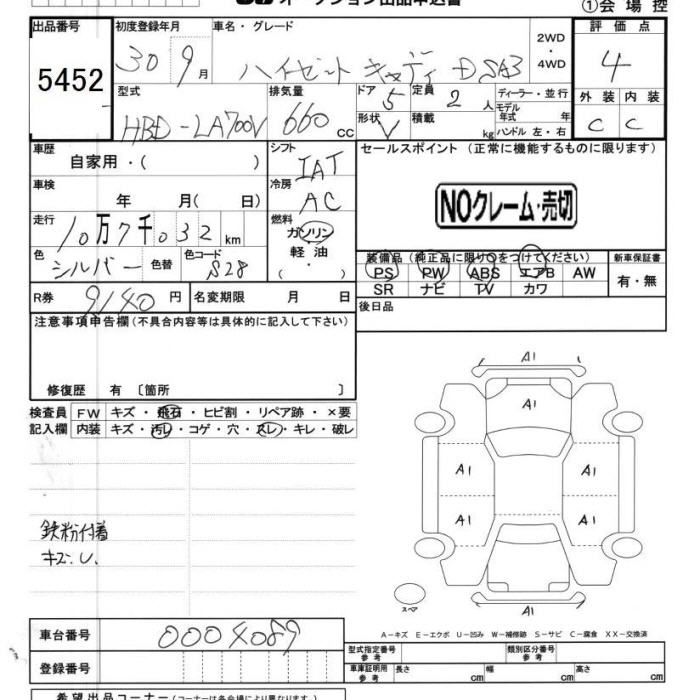 オークション出品申込書
①会場控
出品番号 初度登録年月 車名・グレード 評価点
5452 30 9月 ハイゼット キャディー D SA3 2WD・4WD 4
型式 排気量 ドア 定員 ディーラー・並行 外装 内装
HBD-LA700V 660cc 5 2人 モデル年式 年 C C
形状 V 積載 kg ハンドル 左・右
車歴 シフト セールスポイント (正常に機能するものに限ります)
自家用・( ) IAT
車検 冷房
年 月( 日) AC
NOクレーム・売切
走行 燃料
10万7千032km ガソリン
軽油
( ・ )
色 シルバー 色替 色コード S28
装備品(純正品に限り○をつけてください) 新車保証書
PS PW ABS エアB AW 有・無
SR ナビ TV カワ
R券 9140円 名変期限 月 日
後日品
注意事項申告欄(不具合内容等は具体的に記入して下さい)
修復歴 有 〔箇所 〕
検査員 FW キズ・飛石・ヒビ割・リペア跡・×要
記入欄 内装 キズ・汚レ・コゲ・穴・スレ・キレ・破レ
A1
A1
A1 A1
A1 A1
鉄粉付着
キズ.U.
スペア
A1
A-キズ E-エクボ U-凹み W-補修跡 S-サビ C-腐食 XX-交換済
車台番号 0004089
型式指定番号 参考 類別区分番号 参考
登録番号
車庫証明用 参考 長さ cm 幅 cm 高さ cm
希望出品コーナー(コーナーは各会場により異なります。)